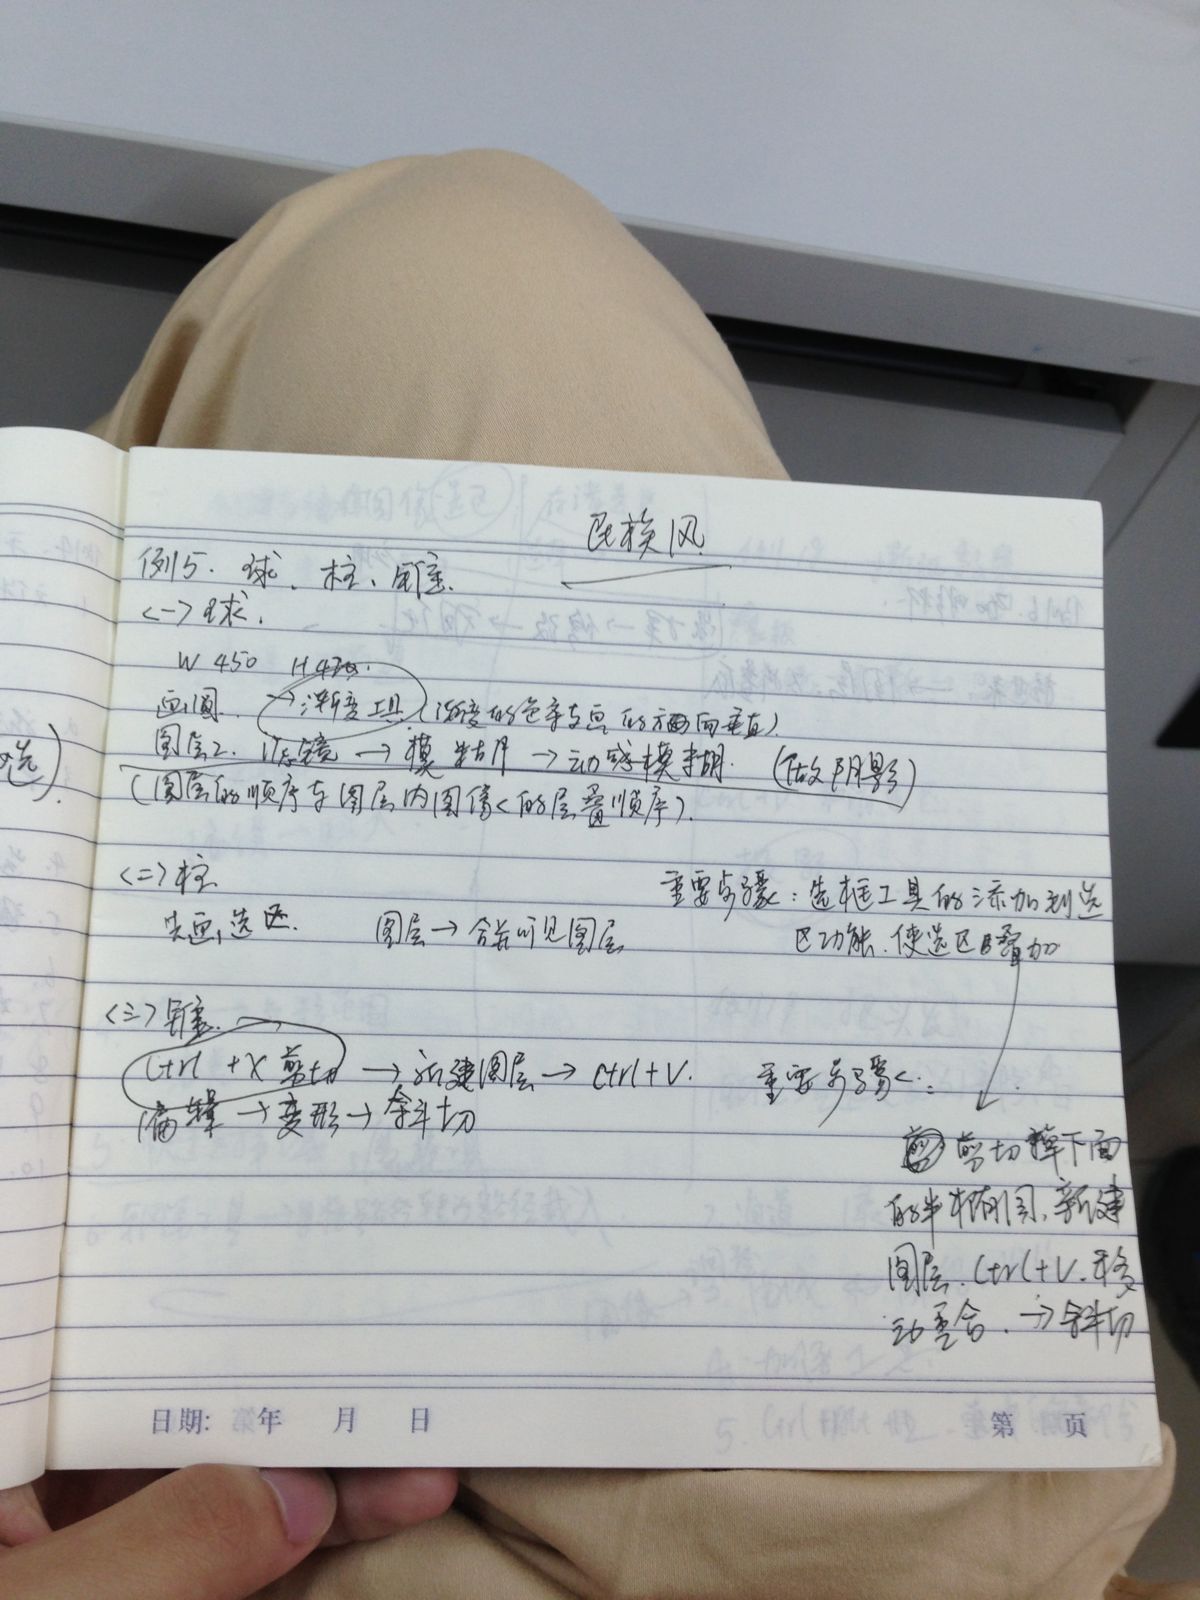 民族风
例5. 球、柱、锥.
<一>球.
W 450 H
画圆. →渐变工具 (渐变的色条与画的方向垂直).
图层2. 滤镜→模糊→动感模糊. (做阴影)
(图层的顺序与图层内图像的层叠顺序).
<二>柱
先画选区. 图层→合并可见图层
重要步骤: 选框工具的添加到选
区功能.使选区叠加
<三>锥.
Ctrl+X 剪切→新建图层→Ctrl+V.
编辑→变形→斜切
重要步骤:
剪切掉下面
的半椭圆、新建
图层.Ctrl+V.移
动重合.→斜切
选).
日期: 年 月 日
第 页